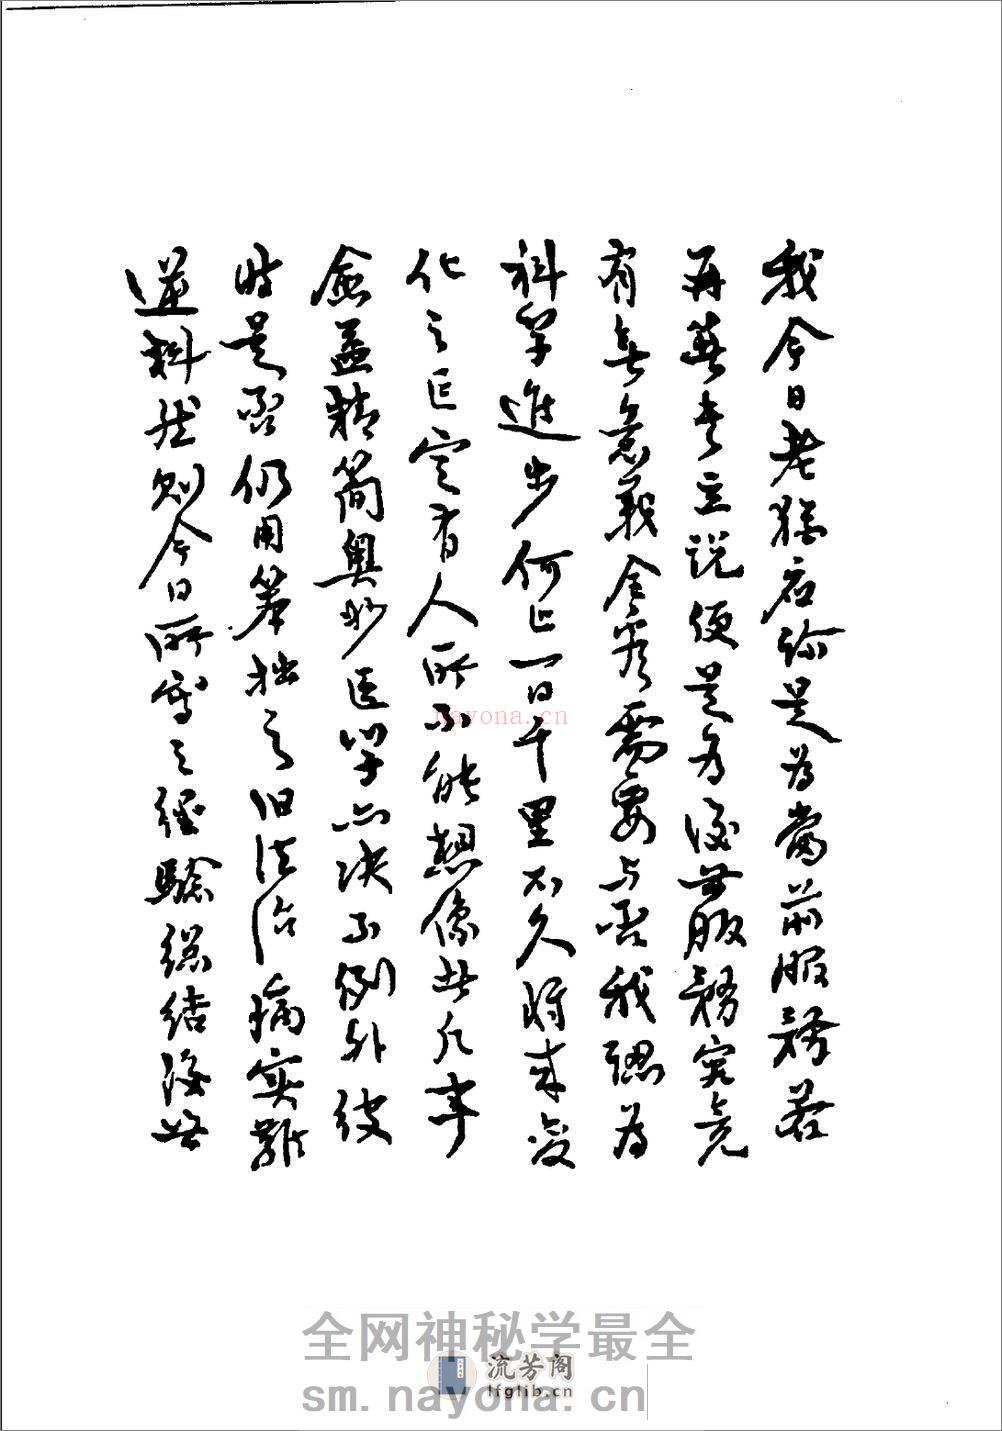 我今日老犹应诊是为当前服务若
再著书立说便是为後世服务究竟
有无意义含有需要与否我认为
科学進步何止一日千里不久将来变
化之巨定有人所不能想像此凡事
愈益精简奥妙医学亦决不例外彼
时是否仍用笨拙之旧法治病实难
逆料然则今日所写之经验总结後世
nayona.cn
全网神秘学最全
流芳阁
lfglib.cn
sm.nayona.cn